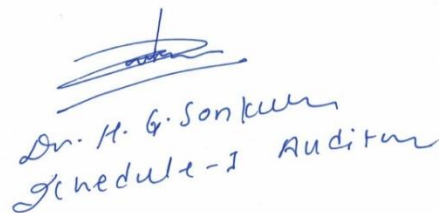 Dr. H. G. Sonkur
Schedule-I Auditor